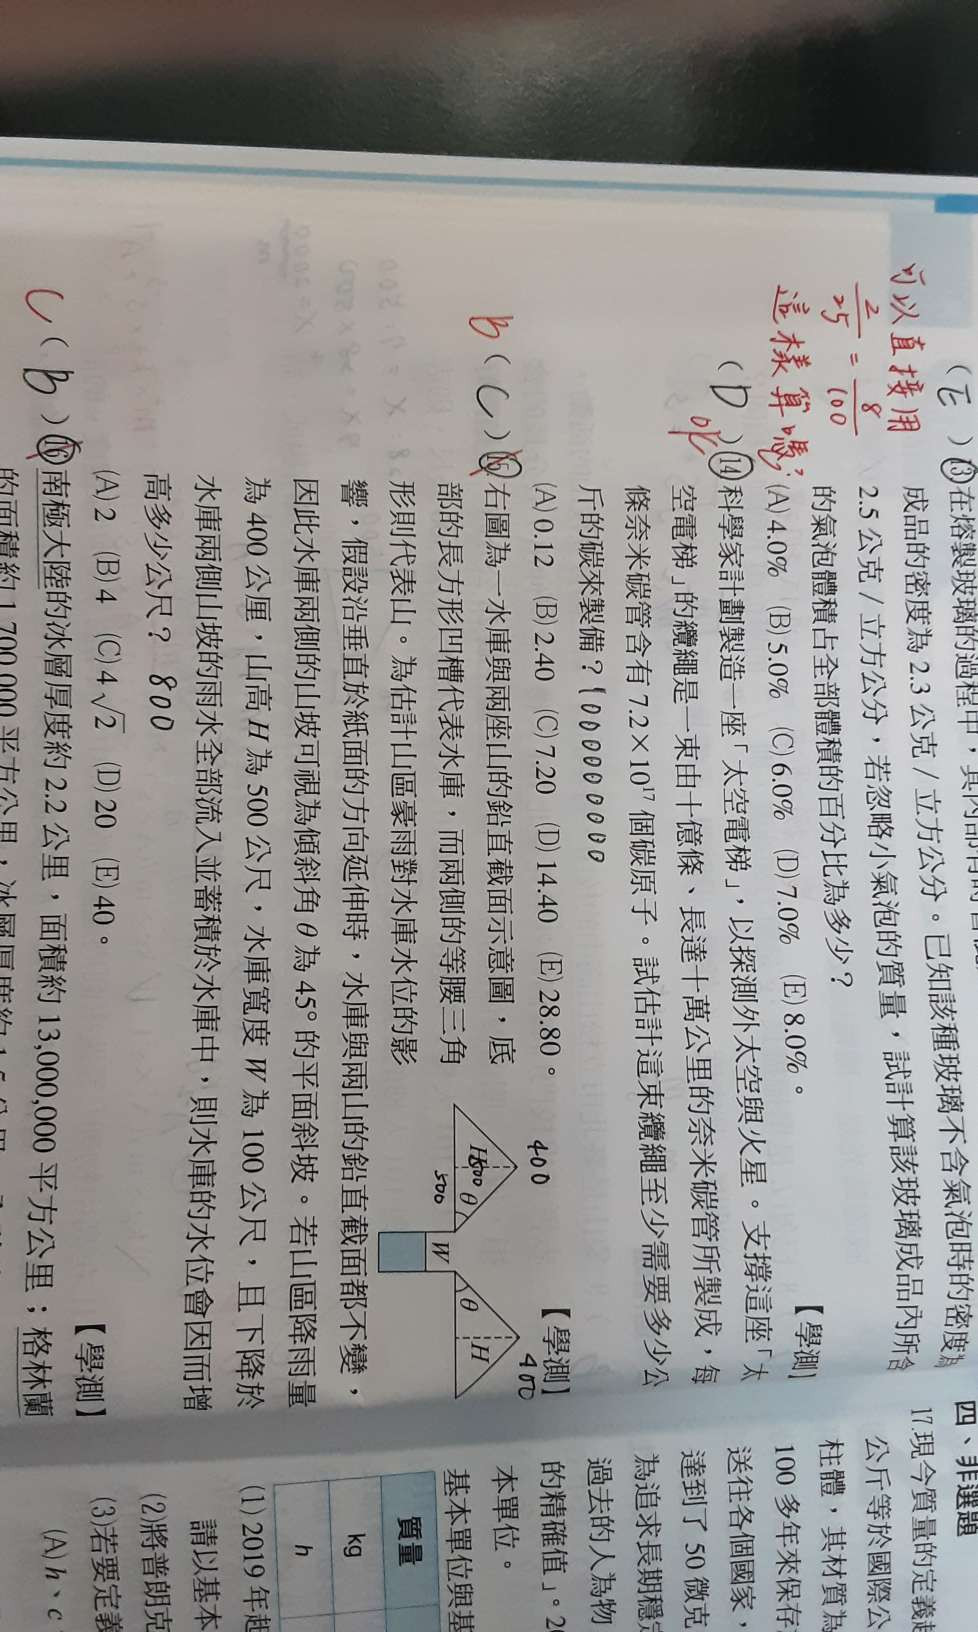 可以直接用
2/25 = 8/100
這樣算嗎?
(E) 13 在熔製玻璃的過程中,其內部
成品的密度為 2.3 公克/立方公分。已知該種玻璃不含氣泡時的密度為
2.5 公克/立方公分,若忽略小氣泡的質量,試計算該玻璃成品內所含
的氣泡體積占全部體積的百分比為多少?
(A) 4.0% (B) 5.0% (C) 6.0% (D) 7.0% (E) 8.0%。
【學測】
(D) 14 科學家計劃製造一座「太空電梯」,以探測外太空與火星。支撐這座「太
空電梯」的纜繩是一束由十億條、長達十萬公里的奈米碳管所製成,每
條奈米碳管含有 7.2×10¹⁷ 個碳原子。試估計這束纜繩至少需要多少公
斤的碳來製備? 1000000000
(A) 0.12 (B) 2.40 (C) 7.20 (D) 14.40 (E) 28.80。
【學測】
B (C) 15 右圖為一水庫與兩座山的鉛直截面示意圖,底
部的長方形凹槽代表水庫,而兩側的等腰三角
形則代表山。為估計山區豪雨對水庫水位的影
響,假設沿垂直於紙面的方向延伸時,水庫與兩山的鉛直截面都不變,
因此水庫兩側的山坡可視為傾斜角 θ 為 45° 的平面斜坡。若山區降雨量
為 400 公厘,山高 H 為 500 公尺,水庫寬度 W 為 100 公尺,且下降於
水庫兩側山坡的雨水全部流入並蓄積於水庫中,則水庫的水位會因而增
高多少公尺? 800
(A) 2 (B) 4 (C) 4√2 (D) 20 (E) 40。
【學測】
400
400
H 500
θ
500
W
θ
H
C (B) 16 南極大陸的冰層厚度約 2.2 公里,面積約 13,000,000 平方公里;格林蘭
的面積約 1,700,000 平方公里,冰層厚度約 1.5 公里
四、非選題
17. 現今質量的定義
公斤等於國際公
柱體,其材質為
100 多年來保存
送往各個國家,
達到了 50 微克
為追求長期穩定
過去的人為物
的精確值」。20
本單位。
基本單位與基
質量
kg
h
(1) 2019 年起
請以基本
(2) 將普朗克
(3) 若要定義
(A) h、c